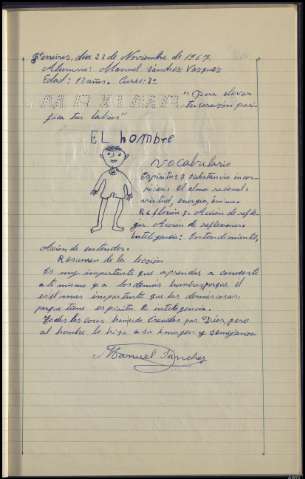 Ferreira, día 22 de Noviembre de 1967.
Alumno: Manuel Sánchez Vazquez
Edad: 12 años. Curso: 3º
MAXIMA
"Para elevar
tu corazón puri-
fica tus labios"
EL hombre
Vocabulario
Espíritu: substancia incor-
porea: El alma racional
virtud, energía, ánimo
Reflexión: Acción de refle-
jar. Acción de reflexionar
Inteligencia: Entendimiento,
Acción de entender.
Resumen de la lección
Es muy importante que aprendas a conocerte
a ti mismo y a los demás hombres porque él
es el more importante que las demas cosas
porque tiene espíritu e inteligencia.
Todas las cosas han sido creadas por Dios, pero
al hombre lo hizo a su imagen y semejanza
Manuel Sánchez